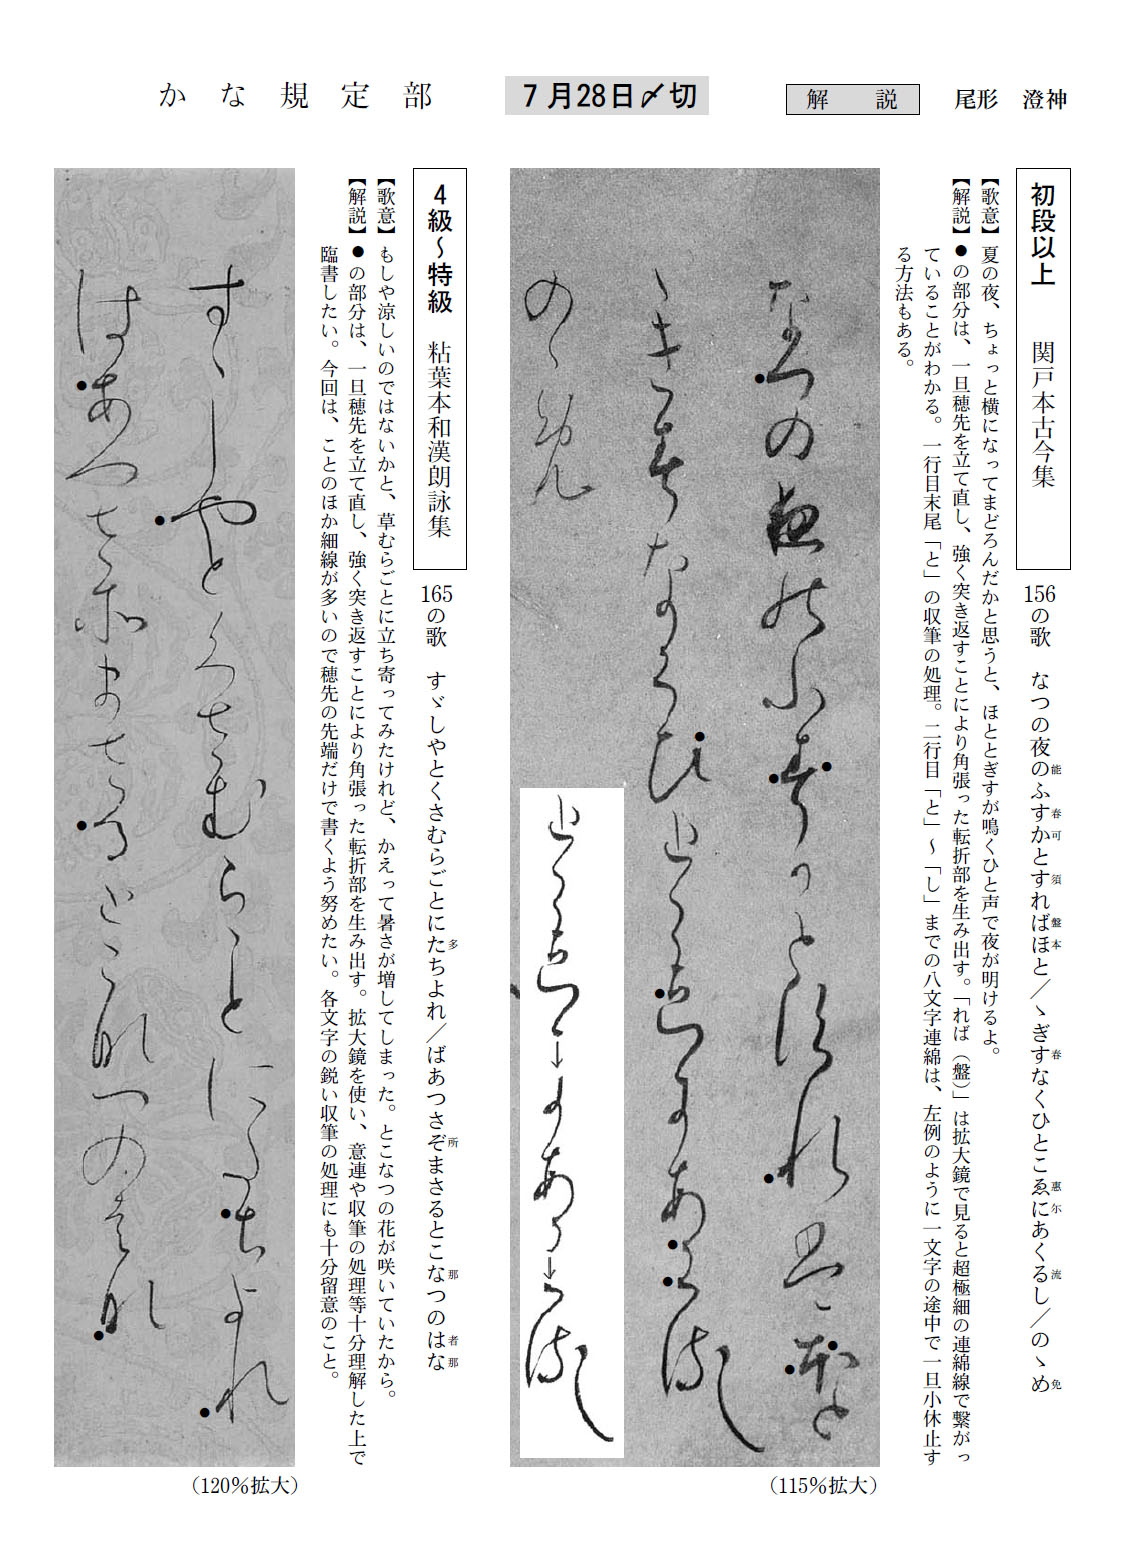 かな規定部
7月28日〆切
解説
尾形 澄神
初段以上 関戸本古今集
156の歌 なつの夜のふすかとすればほと／ヽぎすなくひとこゑにあくるし／のヽめ
能 春 可 須 盤 本 春 惠 尓 流 免
【歌意】夏の夜、ちょっと横になってまどろんだかと思うと、ほととぎすが鳴くひと声で夜が明けるよ。
【解説】●の部分は、一旦穂先を立て直し、強く突き返すことにより角張った転折部を生み出す。「れば（盤）」は拡大鏡で見ると超極細の連綿線で繋がっ
ていることがわかる。一行目末尾「と」の収筆の処理。二行目「と」～「し」までの八文字連綿は、左例のように一文字の途中で一旦小休止す
る方法もある。
なつの夜能ふ春可と須れ盤本と
ヽき春なくひとこ惠尓あくる流し
のヽ免
（115％拡大）
4級～特級 粘葉本和漢朗詠集
165の歌 すヾしやとくさむらごとにたちよれ／ばあつさぞまさるとこなつのはな
多 所 那 者 那
【歌意】もしや涼しいのではないかと、草むらごとに立ち寄ってみたけれど、かえって暑さが増してしまった。とこなつの花が咲いていたから。
【解説】●の部分は、一旦穂先を立て直し、強く突き返すことにより角張った転折部を生み出す。拡大鏡を使い、意連や収筆の処理等十分理解した上で
臨書したい。今回は、ことのほか細線が多いので穂先の先端だけで書くよう努めたい。各文字の鋭い収筆の処理にも十分留意のこと。
すヽしやとくさむらことに多ちよれ
はあつさ所まさるとこ那つのは那
（120％拡大）